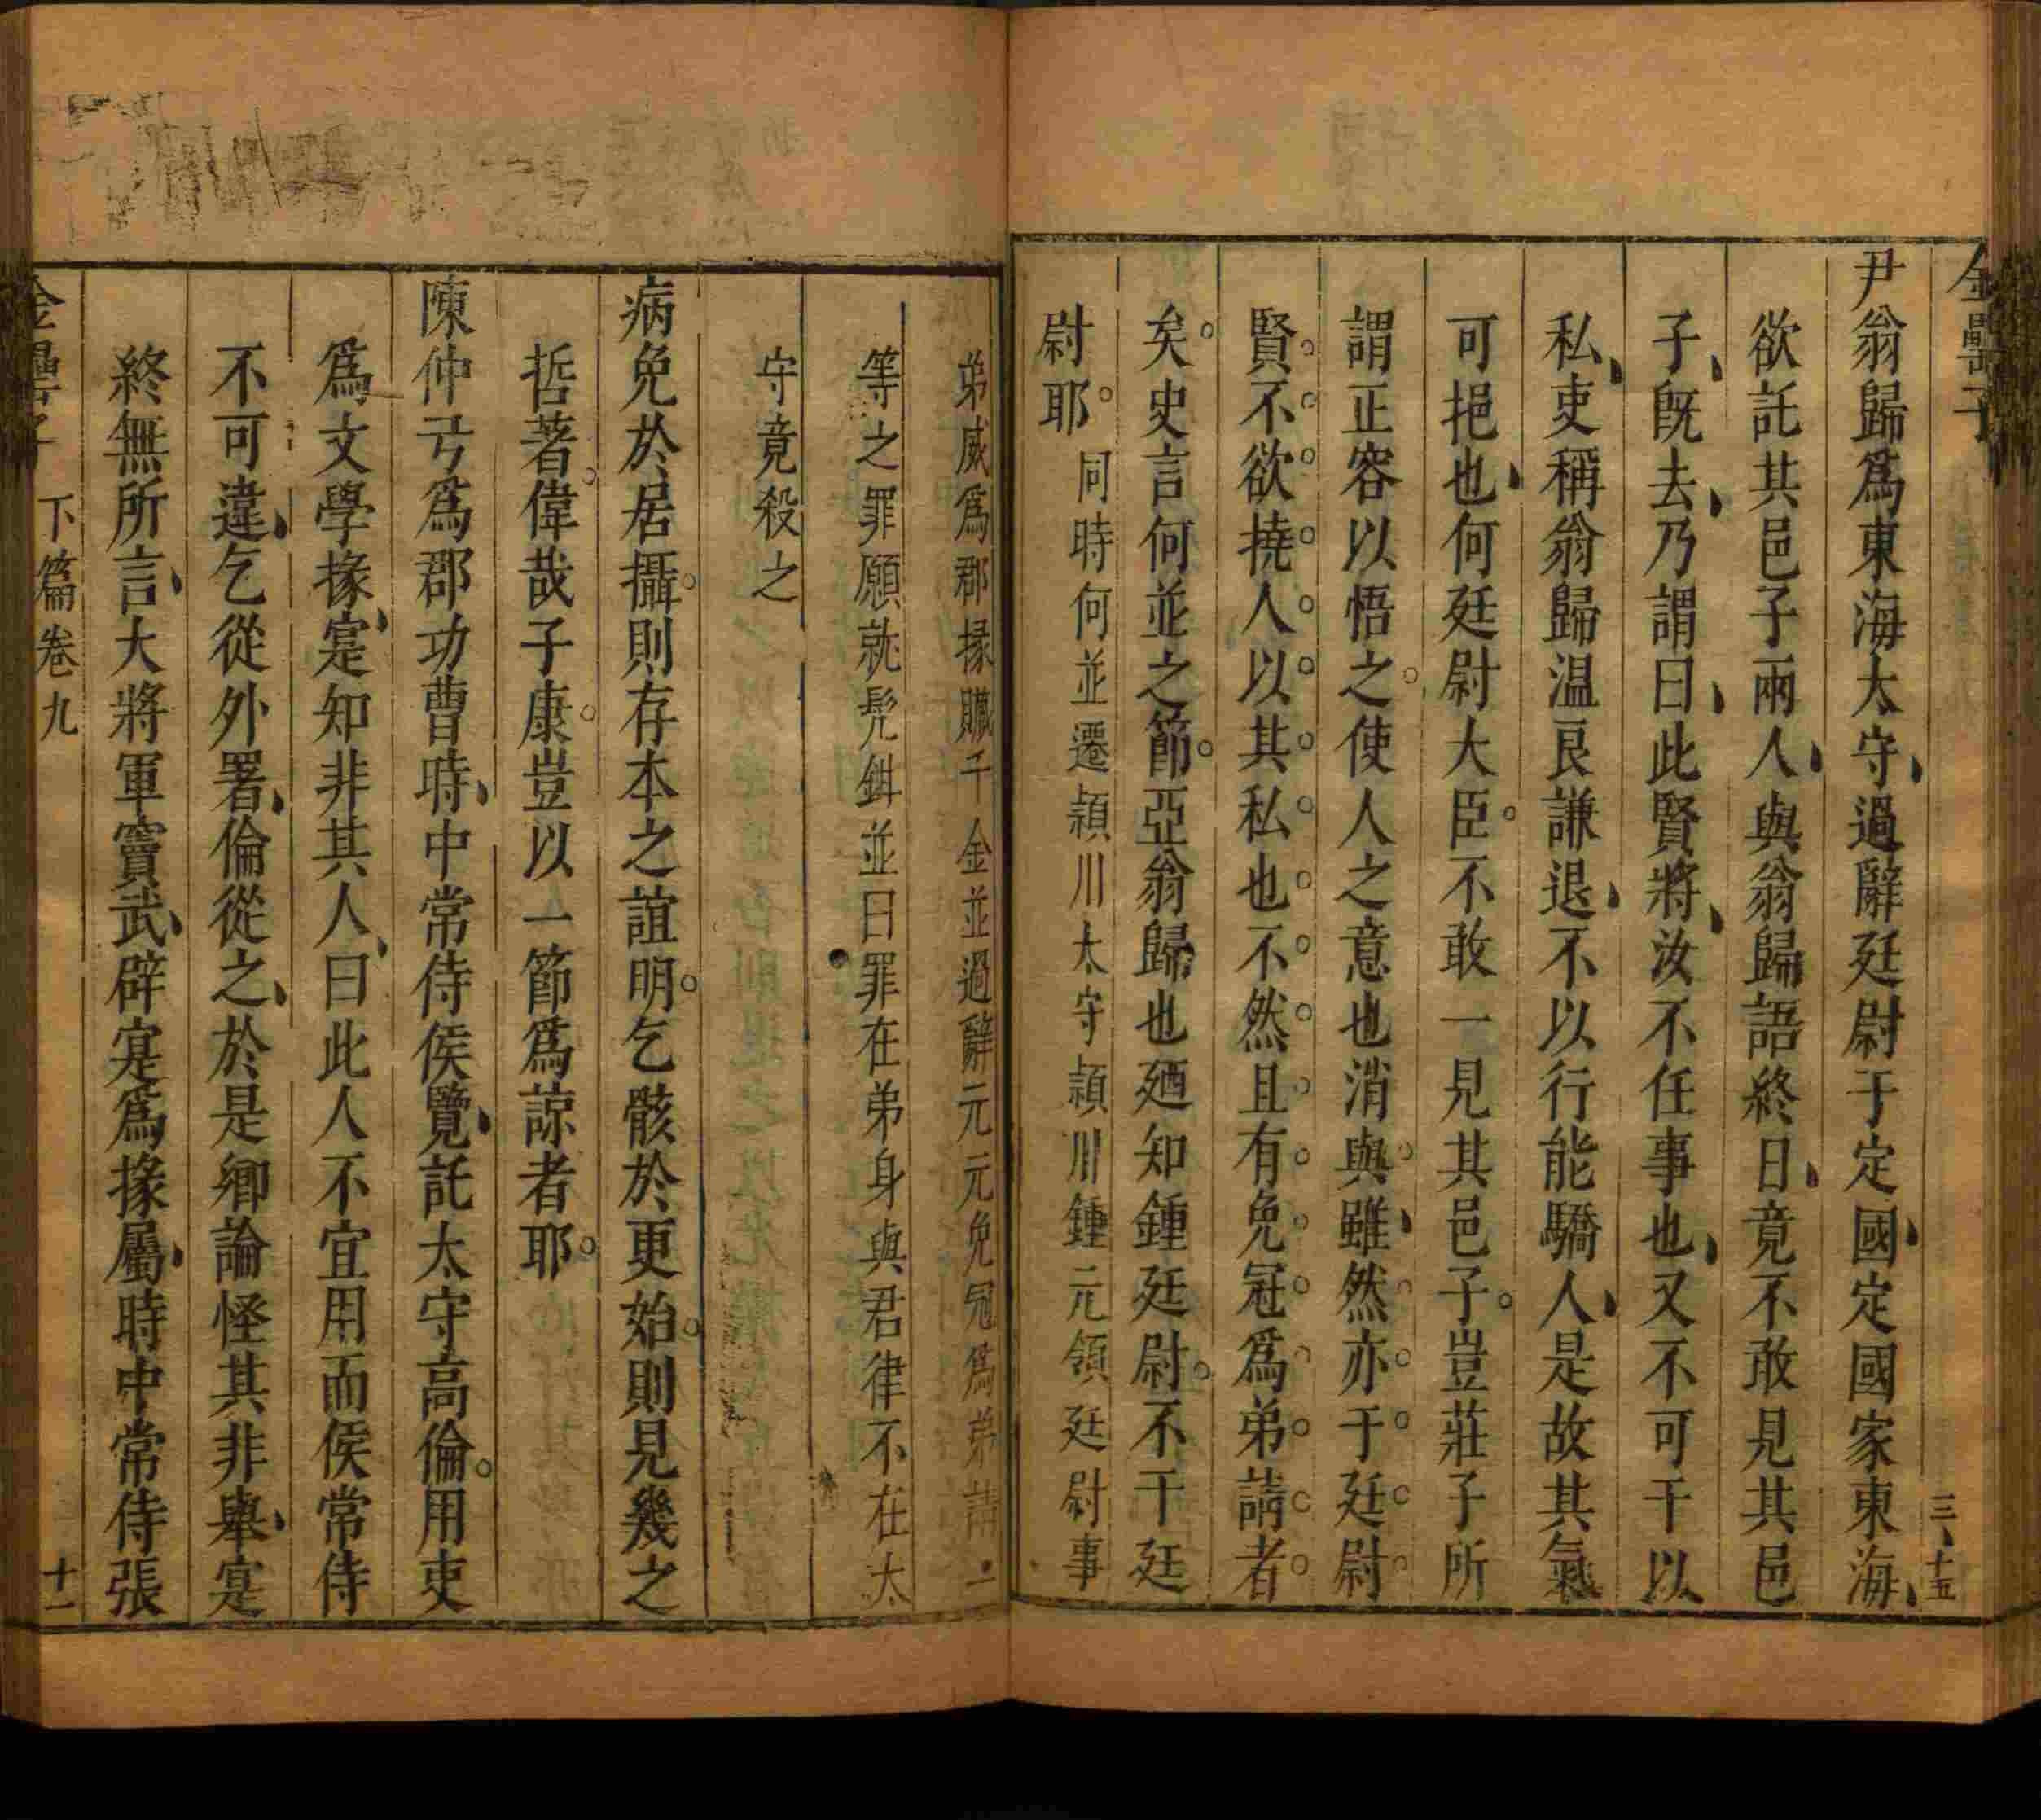 金罍子
三、十五
尹翁歸爲東海太守過辭廷尉于定國定國家東海
欲託其邑子兩人與翁歸語終日竟不敢見其邑
子旣去乃謂曰此賢將汝不任事也又不可干以
私吏稱翁歸温良謙退不以行能驕人是故其氣
可挹也何廷尉大臣不敢一見其邑子豈莊子所
謂正容以悟之使人之意也消與雖然亦于廷尉
賢不欲撓人以其私也不然且有免冠爲弟請者
矣史言何並之節亞翁歸也廼知鍾廷尉不干廷
尉耶 同時何並遷潁川太守潁川鍾元領廷尉事
弟威爲郡掾贓千金並過辭元元免冠爲弟請一
等之罪願就髡鉗並曰罪在弟身與君律不在太
守竟殺之
病免於居攝則存本之誼明乞骸於更始則見幾之
哲著偉哉子康豈以一節爲諒者耶
陳仲弓爲郡功曹時中常侍侯覽託太守高倫用吏
爲文學掾寔知非其人曰此人不宜用而侯常侍
不可違乞從外署倫從之於是鄉論怪其非舉寔
終無所言大將軍竇武辟寔爲掾屬時中常侍張
金罍子 下篇卷九 十一